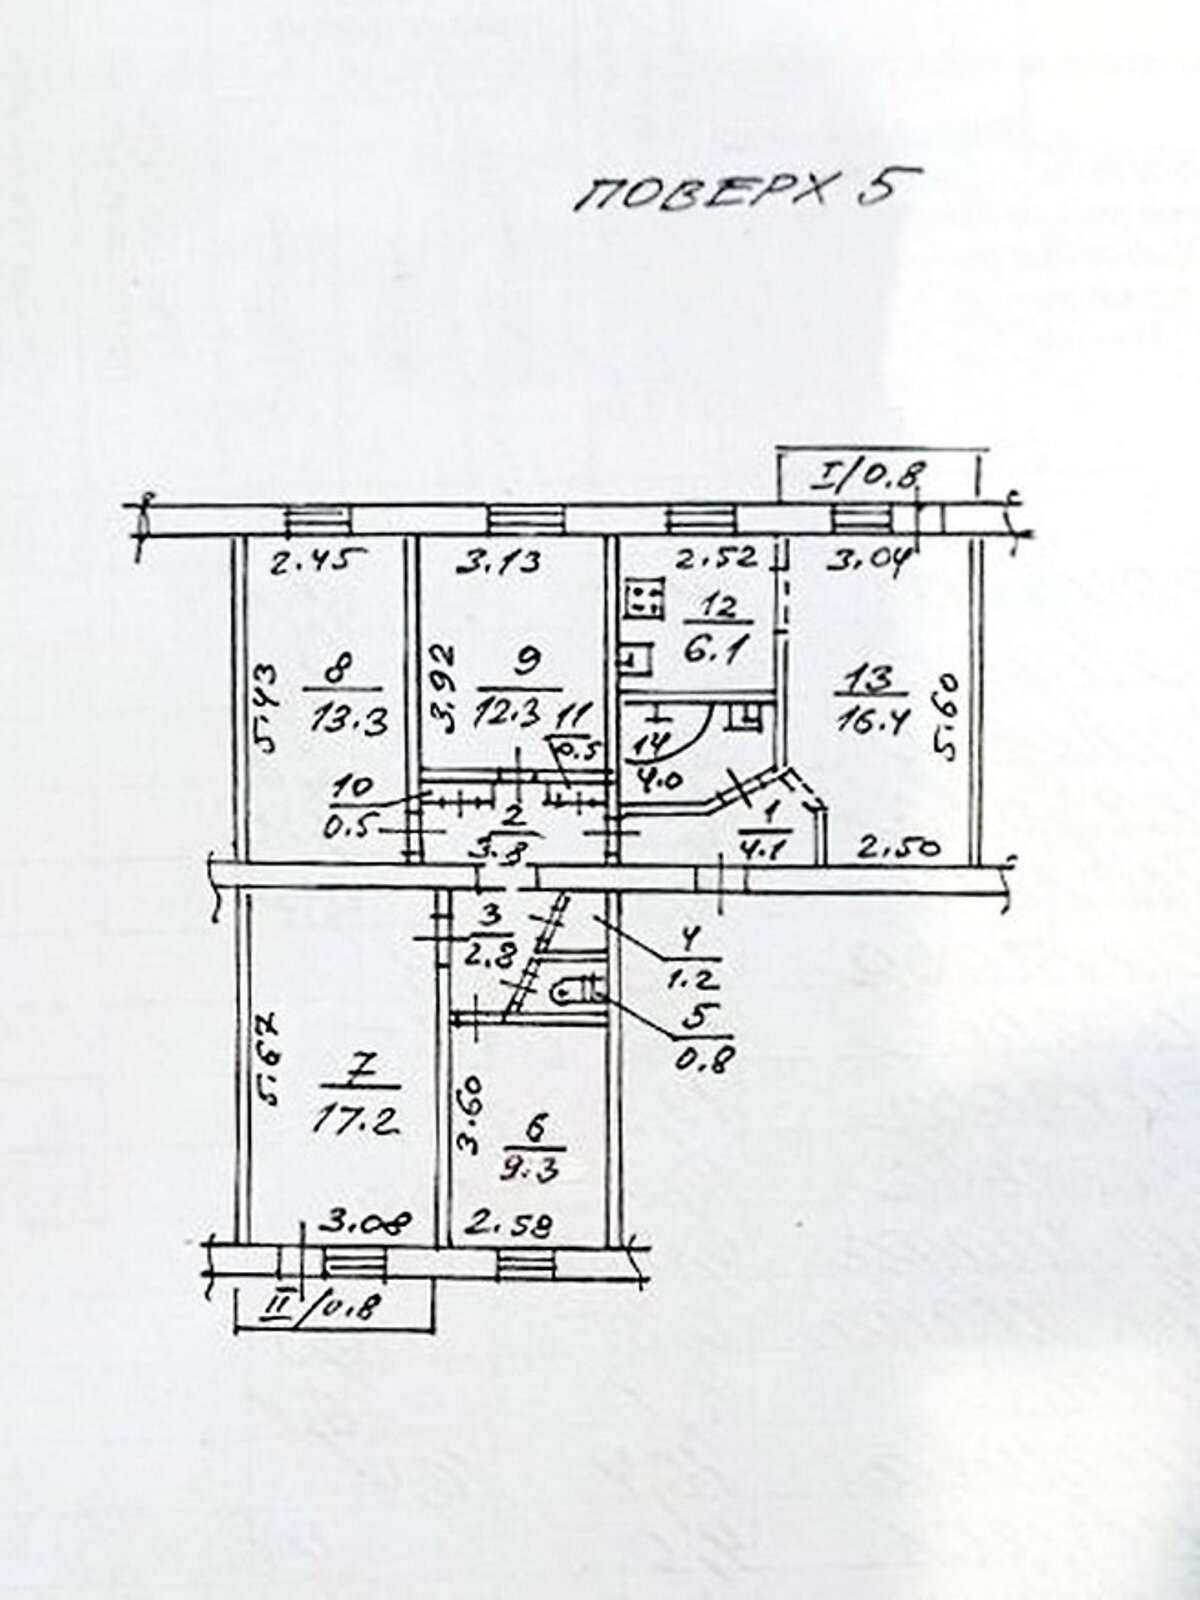 ПОВЕРХ 5
I/0.8
2.45
3.13
2.52
3.04
12
6.1
5.43
8
13.3
3.92
9
12.3
11
0.5
13
16.4
5.60
14
4.0
10
0.5
2
3.8
1
4.1
2.50
3
2.8
4
1.2
5
0.8
5.67
7
17.2
3.60
6
9.3
3.08
2.58
II/0.8